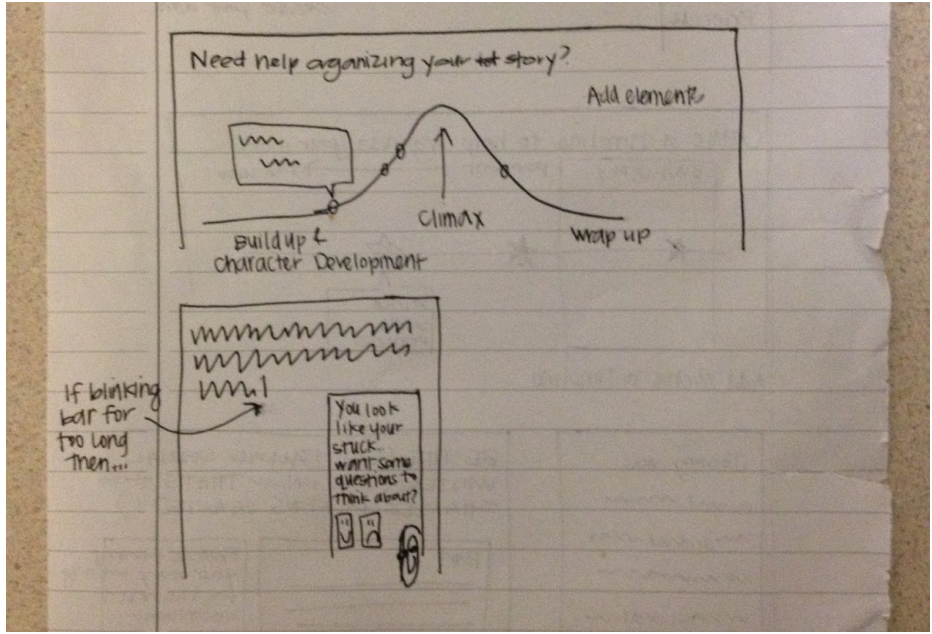 Need help aganizing your story?
Add elements
Climax
Build up &
Character Development
Wrap up
If blinking
bar for
too long
then...
You look
like your
stuck.
want some
questions to
think about?